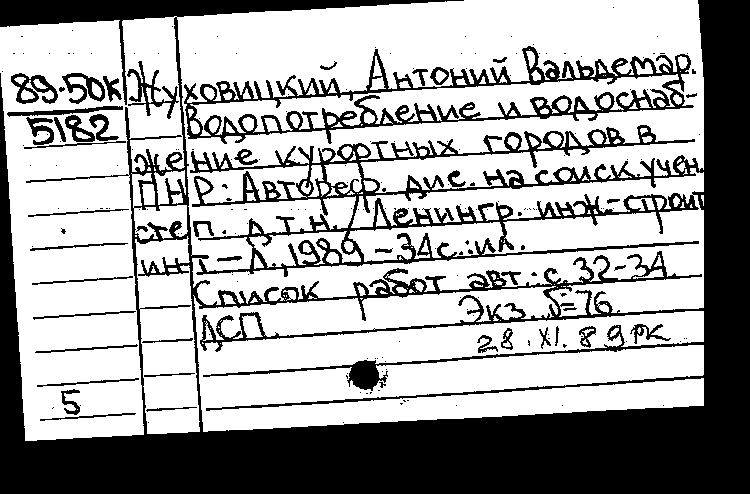 89-50К
5182
Жуховицкий, Антоний Вальдемар.
Водопотребление и водоснаб-
жение курортных городов в
ПНР: Автореф. дис. на соиск. учен.
степ. д.т.н. / Ленингр. инж.-строит
ин-т – Л., 1989 – 34с.:ил.
Список работ авт.: с. 32-34.
ДСП. Экз. б=76.
28.XI.89 РК
5